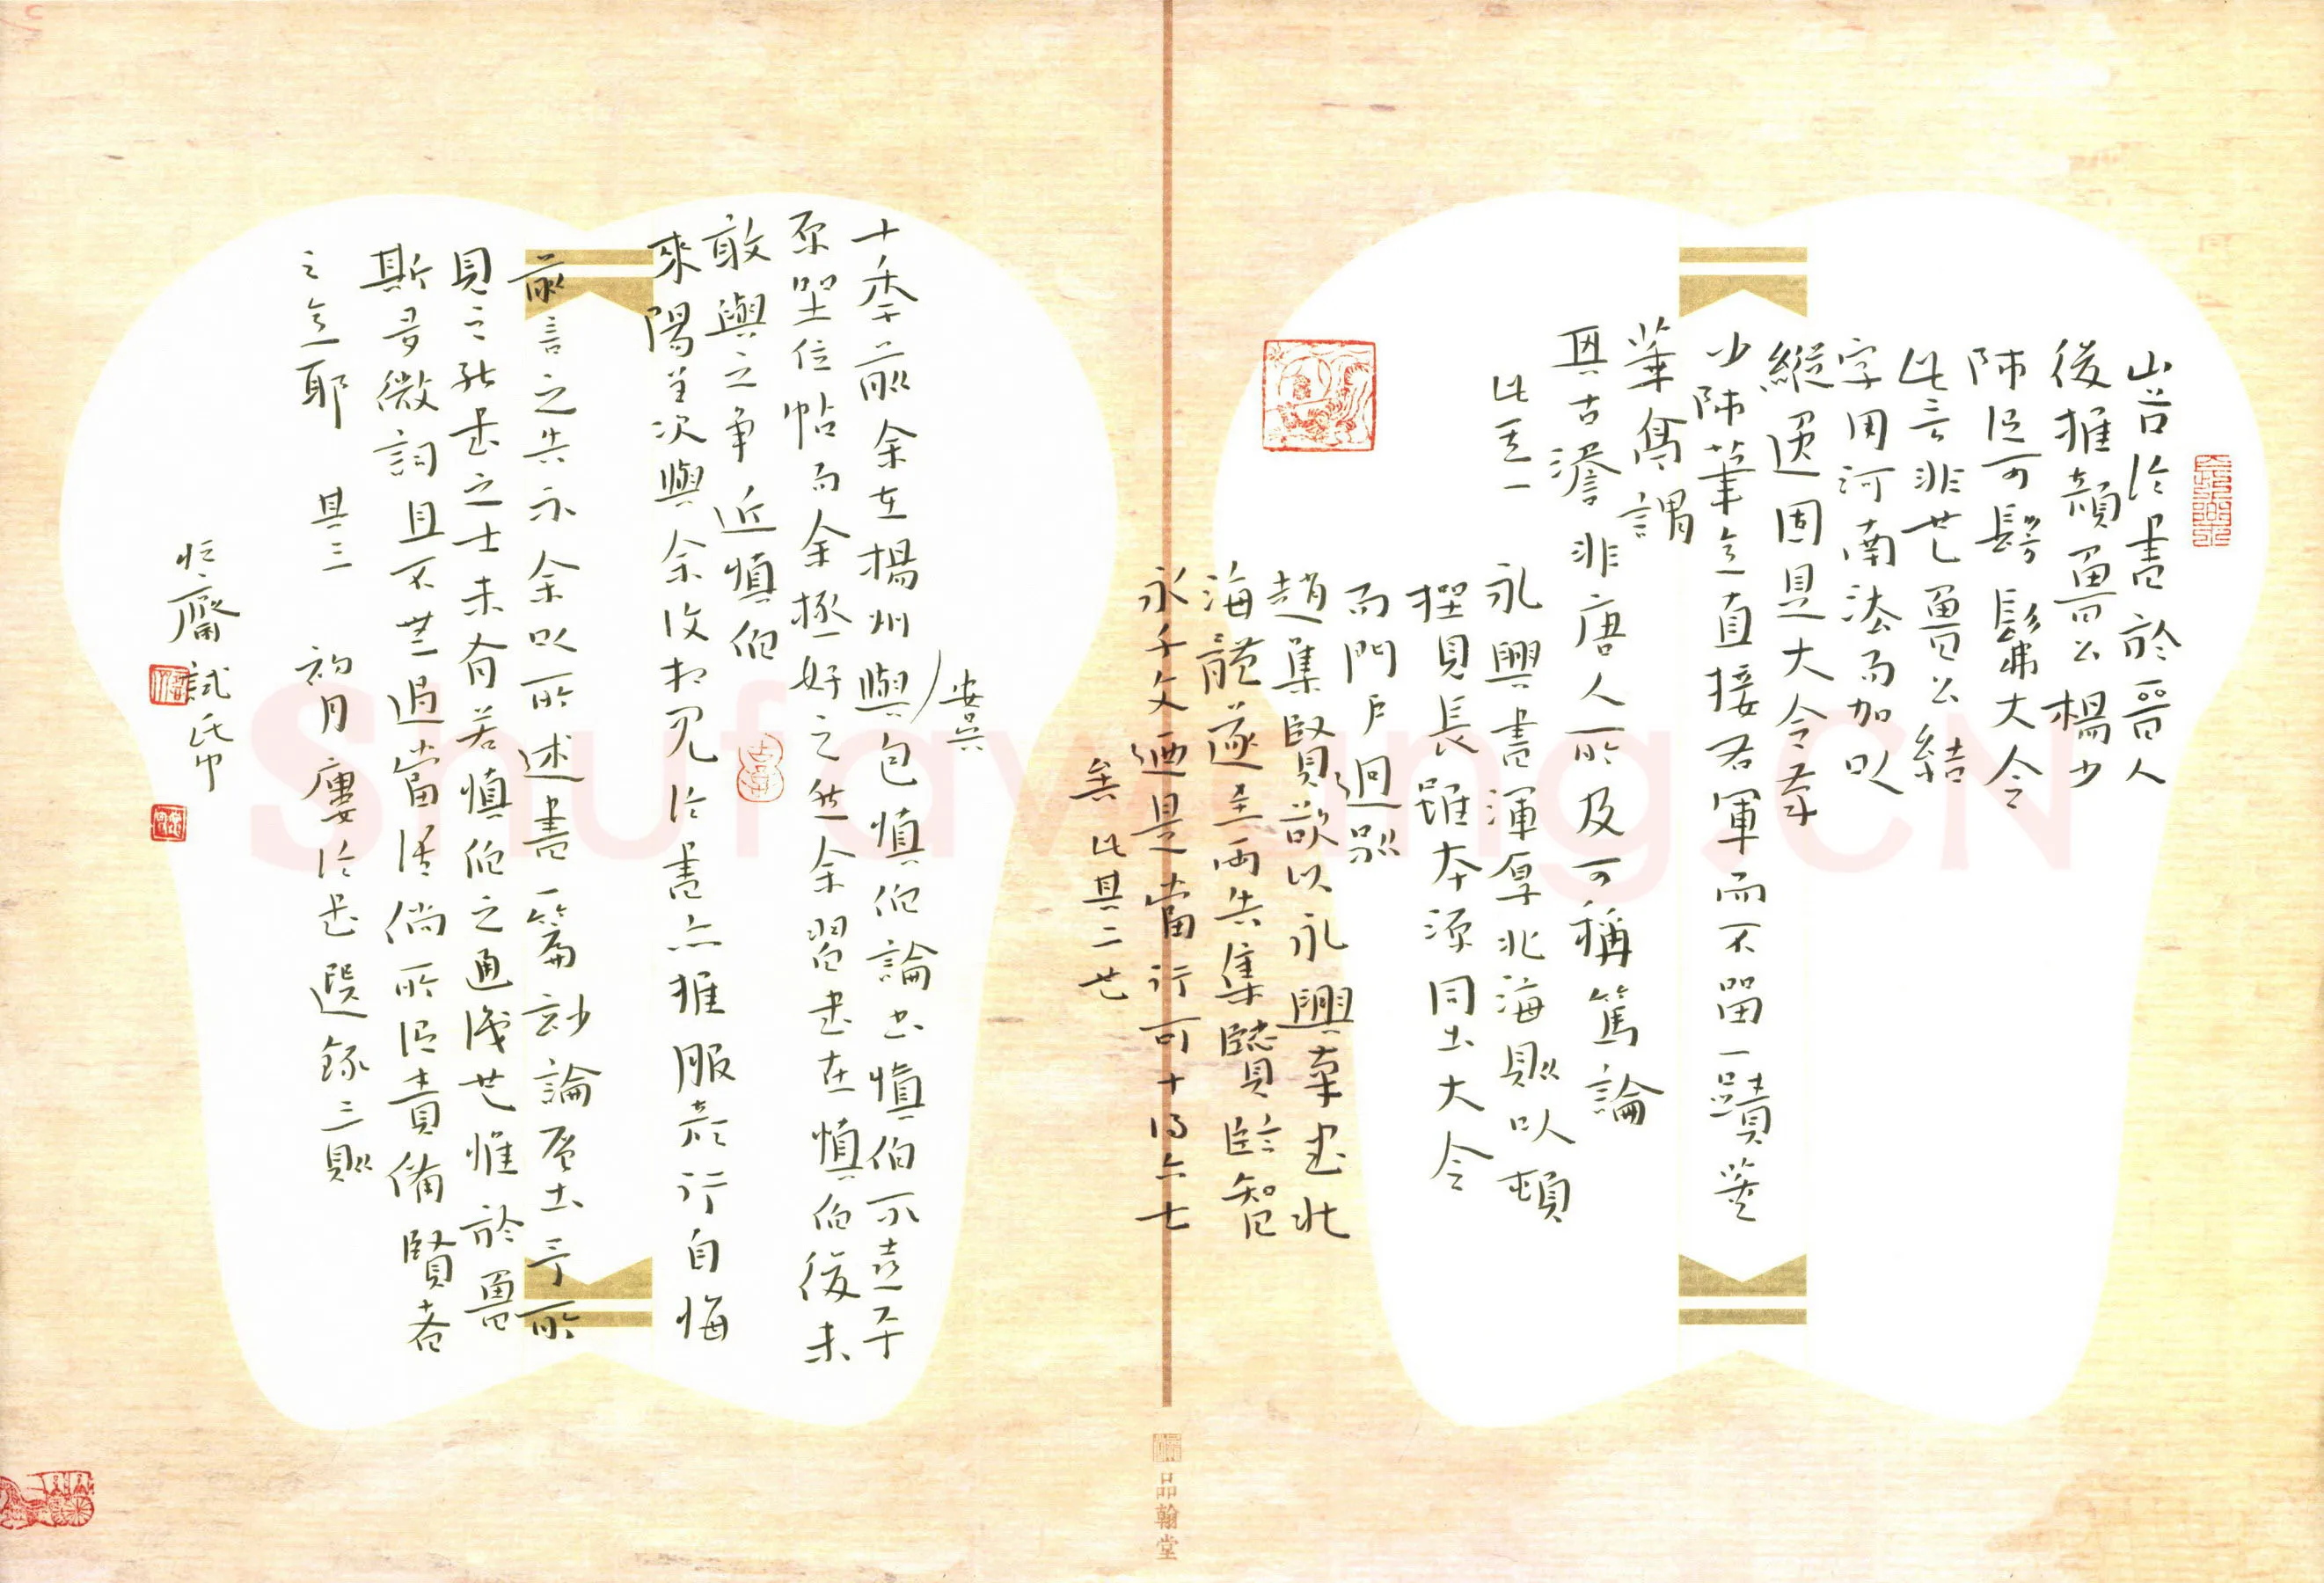 山谷論書於晉人
後推顏魯公楊少
師謂可髣髴大令
此言非也魯公結
字用河南法而加以
縱逸固是大令
少師筆意直接右軍而不留一蹟
華寫謂
古澹非唐人所及可稱篤論
此其一
永興書渾厚北海則以頓
挫見長雖本源同出大令
而門戶迥別
趙集賢欲以永興筆書北
海體遂至兩失集賢臨智
永千文廼是當行可十得六七
矣 此其二也
安吳
十年前余在楊州與包慎伯論書慎伯不喜平
原坐位帖而余極好之然余習書在慎伯後未
敢與之爭 近慎伯
來陽羨次與余復相見論書亦推服顏行自悔
前言之失示余以所述書一篇
見之 書之士未有若慎伯之通識也惟於魯
斯多微詞且不無過當 倘所謂責備賢者
之意耶 其三 初月廔論書選錄三則
試筆
品翰堂
Shufawang.CN